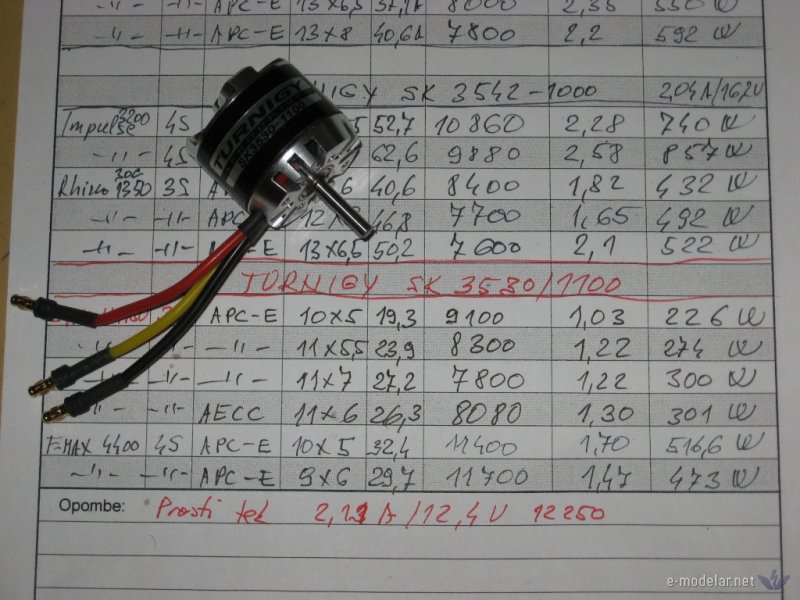 -"- -"- APC-E 13x6,5 37,1A 8000 2,35 550 W
-"- -"- APC-E 13x8 40,6A 7800 2,2 592 W
SK 3542-1000 20,4A/16,2V
Impulse 3200 4S 52,7 10860 2,28 740 W
-"- 4S 62,6 9880 2,58 857 W
Rhino 1350 3S 40,6 8400 1,82 432 W
-"- -"- APC 46,8 7700 1,65 492 W
-"- -"- 13x6,5 50,2 7600 2,1 522 W
TURNIGY SK 3530/1100
APC-E 10x5 19,3 9100 1,03 226 W
-"- -"- -"- 11x5,5 23,9 8300 1,22 274 W
-"- -"- -"- 11x7 27,2 7800 1,22 300 W
-"- -"- AECC 11x6 26,3 8080 1,30 301 W
F-MAX 4400 4S APC-E 10x5 32,4 11400 1,70 516,6 W
-"- -"- APC-E 9x6 29,7 11700 1,47 473 W
Opombe: Prosti tek 12,4V 12250
TURNIGY
SK3530-1100
e-modelar.net